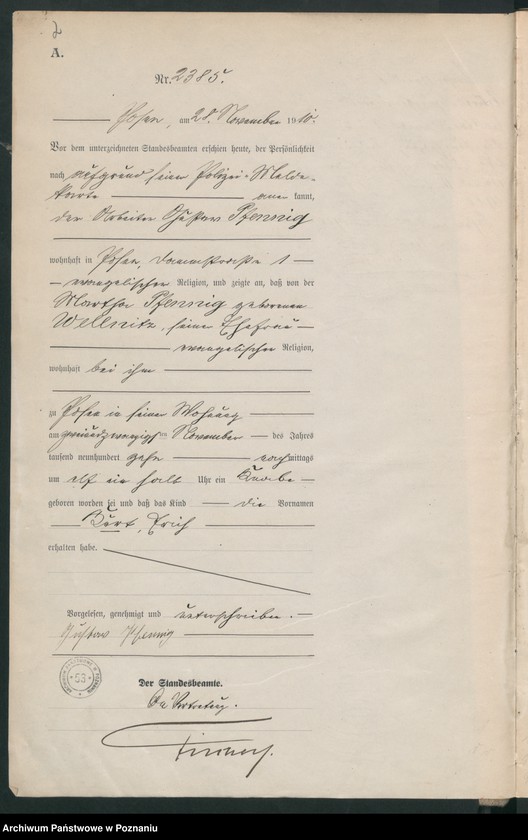 2
A.
Nr. 2385.
Posen, am 28. November 1910.
Vor dem unterzeichneten Standesbeamten erschien heute, der Persönlichkeit
nach aufgrund seiner Polizei-Melde-
karte aner kannt,
der Arbeiter Gustav Pfennig
wohnhaft in Posen, Dammstraße 1
evangelischer Religion, und zeigte an, daß von der
Martha Pfennig geborenen
Wellnitz, seiner Ehefrau
evangelischer Religion,
wohnhaft bei ihm
zu Posen in seiner Wohnung
am ten November des Jahres
tausend neunhundert zehn nachmittags
um elf ein halb Uhr ein Knabe
geboren worden sei und daß das Kind die Vornamen
Kurt, Erich
erhalten habe.
Vorgelesen, genehmigt und unterschrieben.
Gustav Pfennig
Der Standesbeamte.
In Vertretung.
53
Archiwum Państwowe w Poznaniu